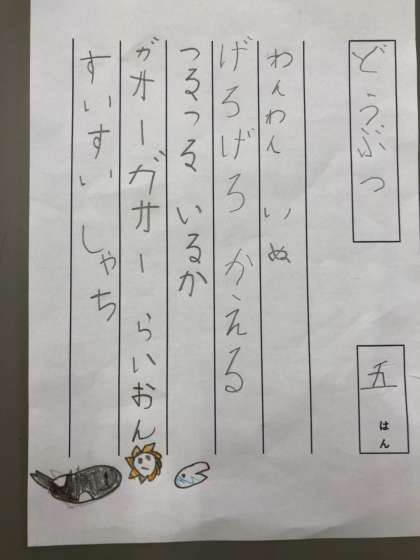 どうぶつ
五はん
わんわん いぬ
げろげろ かえる
つるつる いるか
ガオーガオー らいおん
すいすい しゃち